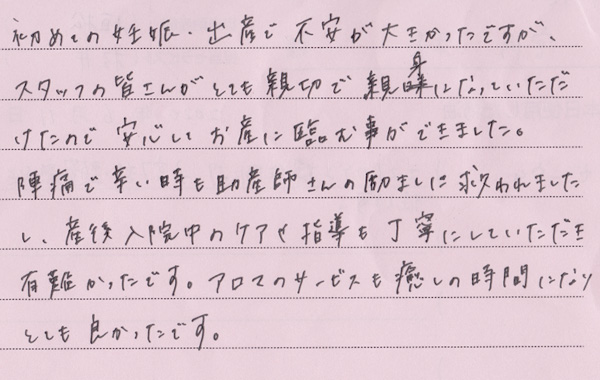 初めての妊娠、出産で不安が大きかったですが、
スタッフの皆さんがとても親切で親身になっていただ
けたので安心してお産に臨む事ができました。
陣痛で辛い時も助産師さんの励ましに救われました
し、産後入院中のケアや指導も丁寧にしていただき
有難かったです。アロマのサービスも癒しの時間になり
とても良かったです。